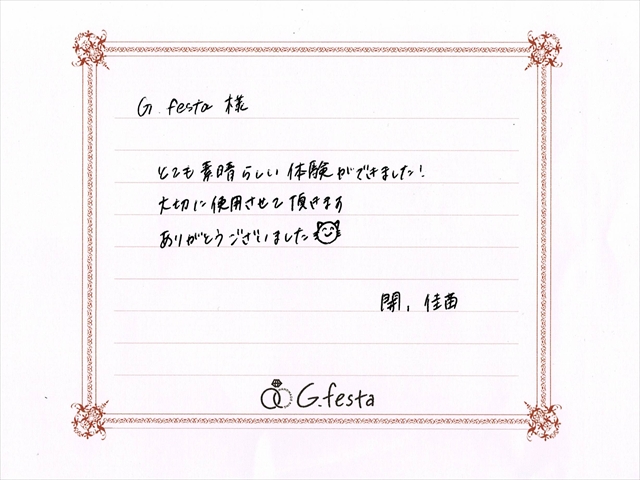 G.festa 様
とても素晴らしい体験ができました!
大切に使用させて頂きます
ありがとうございました
開, 佳苗
G.festa